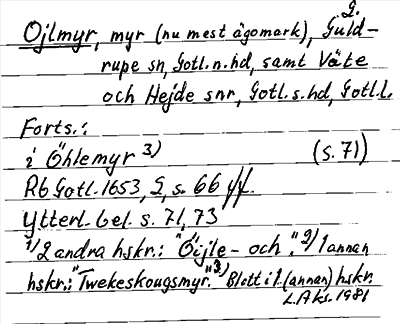 G.
Ojlmyr, myr (nu mest ägomark), Guld-
rupe sn, Gotl. n. hd, samt Väte
och Hejde snr, Gotl. s. hd, Gotl. l.
Forts.:
i Öhlemyr 3) (s. 71)
Rb Gotl. 1653, 2, s. 66 ff.
Ytterl. bel. s. 71, 73
1) 2 andra hskr.: "Öijle- och". 2) 1 annan
hskr.: "Twekeskougsmyr." 3) Blott i 1 (annan) hskr.
L. A ks. 1981